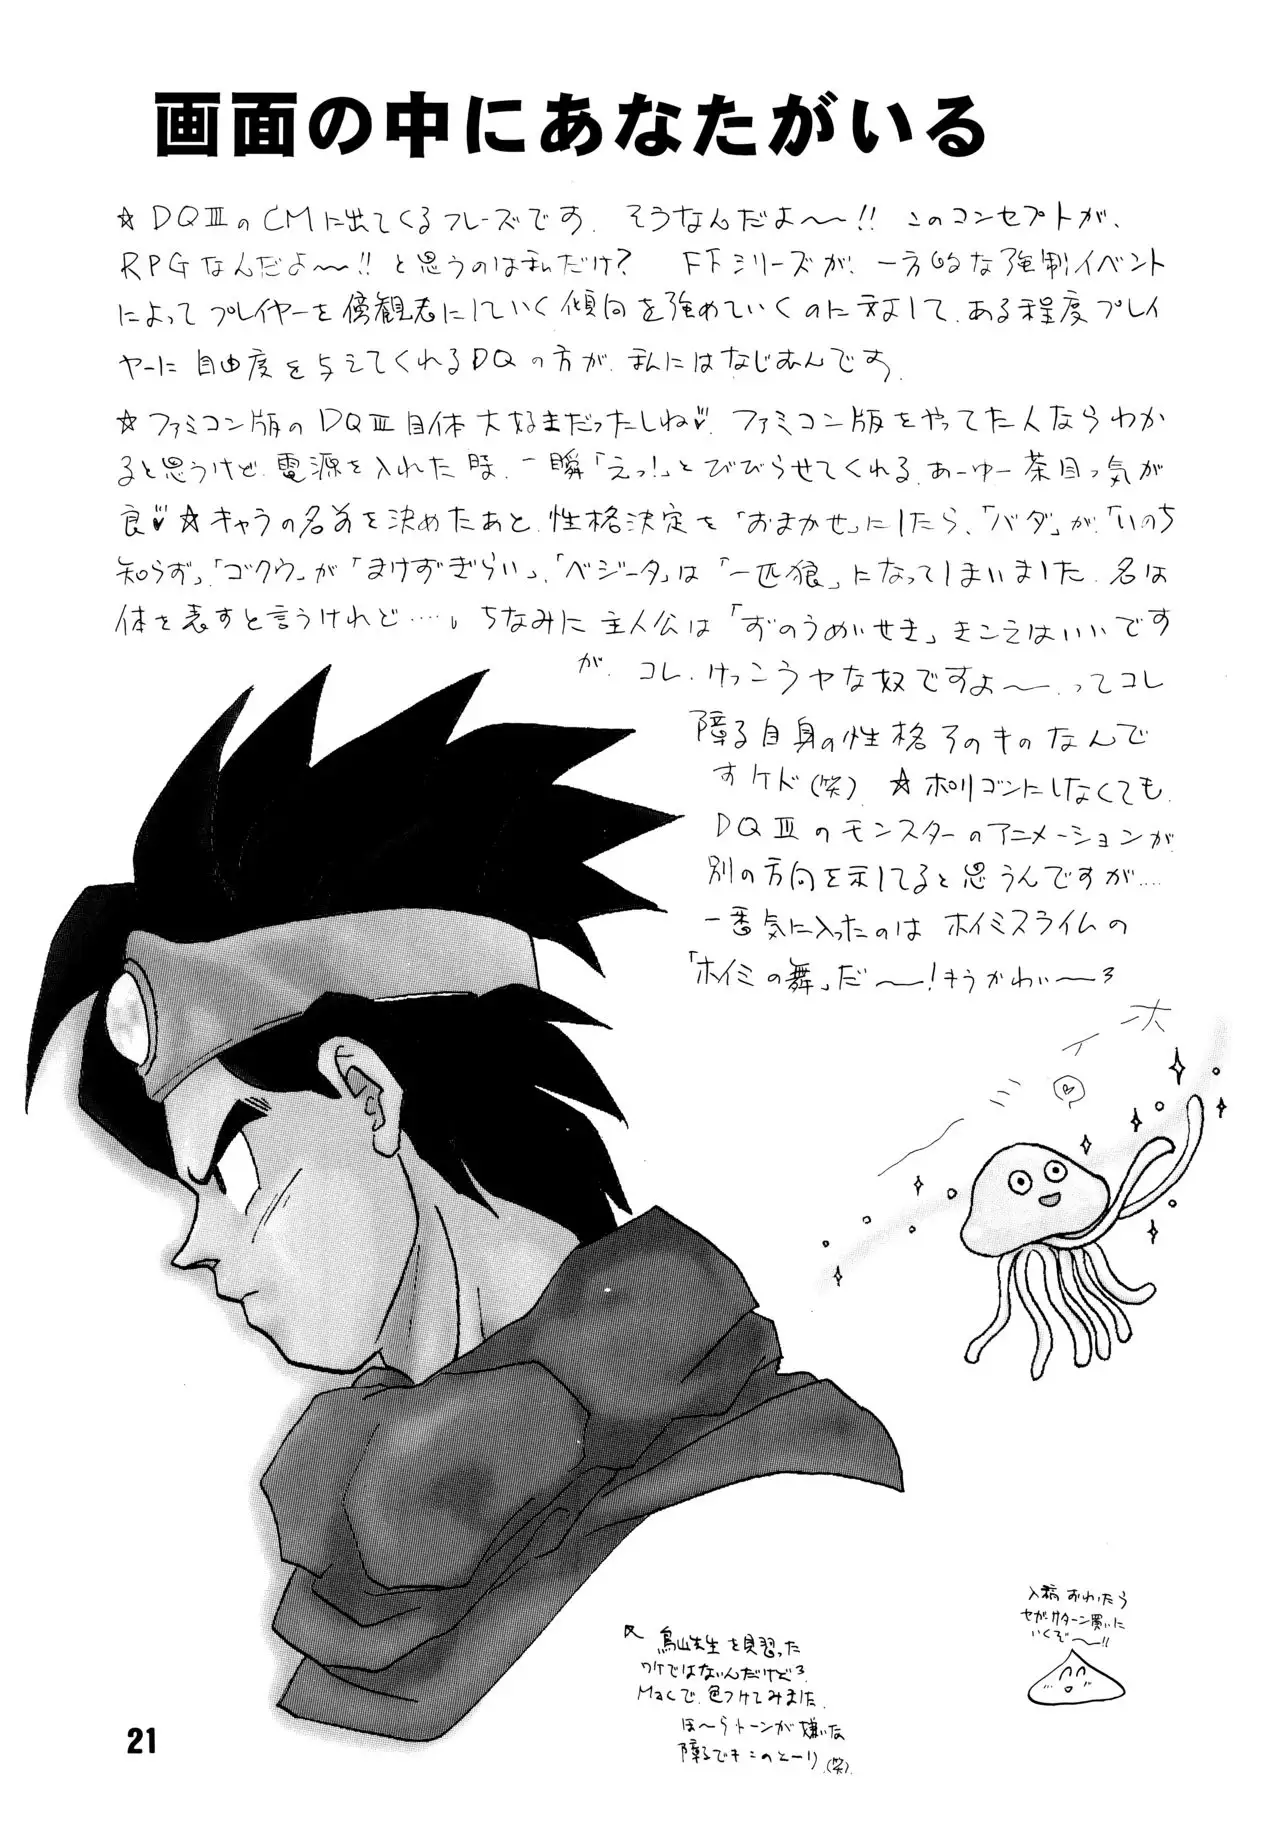 画面の中にあなたがいる
☆DQⅢのCMに出てくるフレーズです。そうなんだよ〜!! このコンセプトが、
RPGなんだよ〜!! と思うのは私だけ? FFシリーズが、一方的な強制イベント
によってプレイヤーを傍観者にしていく傾向を強めていくのに対して、ある程度プレイ
ヤーに自由度を与えてくれるDQの方が、私にはなじむんです。
☆ファミコン版のDQⅢ自体大好きだったしね♡。ファミコン版をやってた人ならわか
ると思うけど、電源を入れた時、一瞬「えっ!」とびびらせてくれる、あーゆー茶目っ気が
良♡ ☆キャラの名前を決めたあと、性格決定を「おまかせ」にしたら、「バダ」が「いのち
知らず」、「ゴクウ」が「まけずぎらい」、「ベジータ」は「一匹狼」になってしまいました。名は
体を表すと言うけれど……。ちなみに主人公は「ずのうめいせき」きこえはいいです
が、コレ、けっこうヤな奴ですよ〜。ってコレ
障る自身の性格そのものなんで
すケド(笑)。 ☆ポリゴンにしなくても、
DQⅢのモンスターのアニメーションが
別の方向を示してると思うんですが……
一番気に入ったのは ホイミスライムの
「ホイミの舞」だ〜! もうかわい〜ろ
ホイミ〜
↖ 鳥山先生を見習った
ワケではないんだけどろ
Macで、色つけてみました。
ほ〜らトーンが嫌いな
障るでもこのとーり(笑)。
入稿おわったら
セガ・サターン買いに
いくぞ〜!!
21